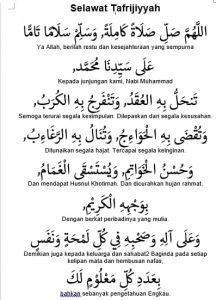 Selawat Tafrijiyyah
اللَّهُمَّ صَلِّ صَلَاةً كَامِلَةً, وَسَلِّمْ سَلَامًا تَامًّا
Ya Allah, berilah restu dan kesejahteraan yang sempurna
عَلَى سَيِّدِنَا مُحَمَّدٍ,
Kepada junjungan kami, Nabi Muhammad
تَنْحَلُّ بِهِ الْعُقَدُ, وَتَنْفَرِجُ بِهِ الْكُرَبُ,
Semoga terurai segala kesimpulan. Dilepaskan dari segala kesusahan.
وَتُقْضَى بِهِ الْحَوَائِجُ, وَتُنَالُ بِهِ الرَّغَائِبُ,
Ditunaikan segala hajat. Tercapai segala keinginan.
وَحُسْنُ الْخَوَاتِمِ, وَيُسْتَسْقَى الْغَمَامُ,
Dan mendapat Husnul Khotimah. Dan dicurahkan hujan rahmat.
بِوَجْهِهِ الْكَرِيْمِ,
Dengan berkat peribadinya yang mulia.
وَعَلَى آلِهِ وَصَحْبِهِ فِي كُلِّ لَمْحَةٍ وَنَفَسٍ
Demikian juga kepada keluarga dan sahabat2 Baginda pada setiap
kelipan mata dan hembusan nafas,
بِعَدَدِ كُلِّ مَعْلُومٍ لَكَ
bahkan sebanyak pengetahuan Engkau.